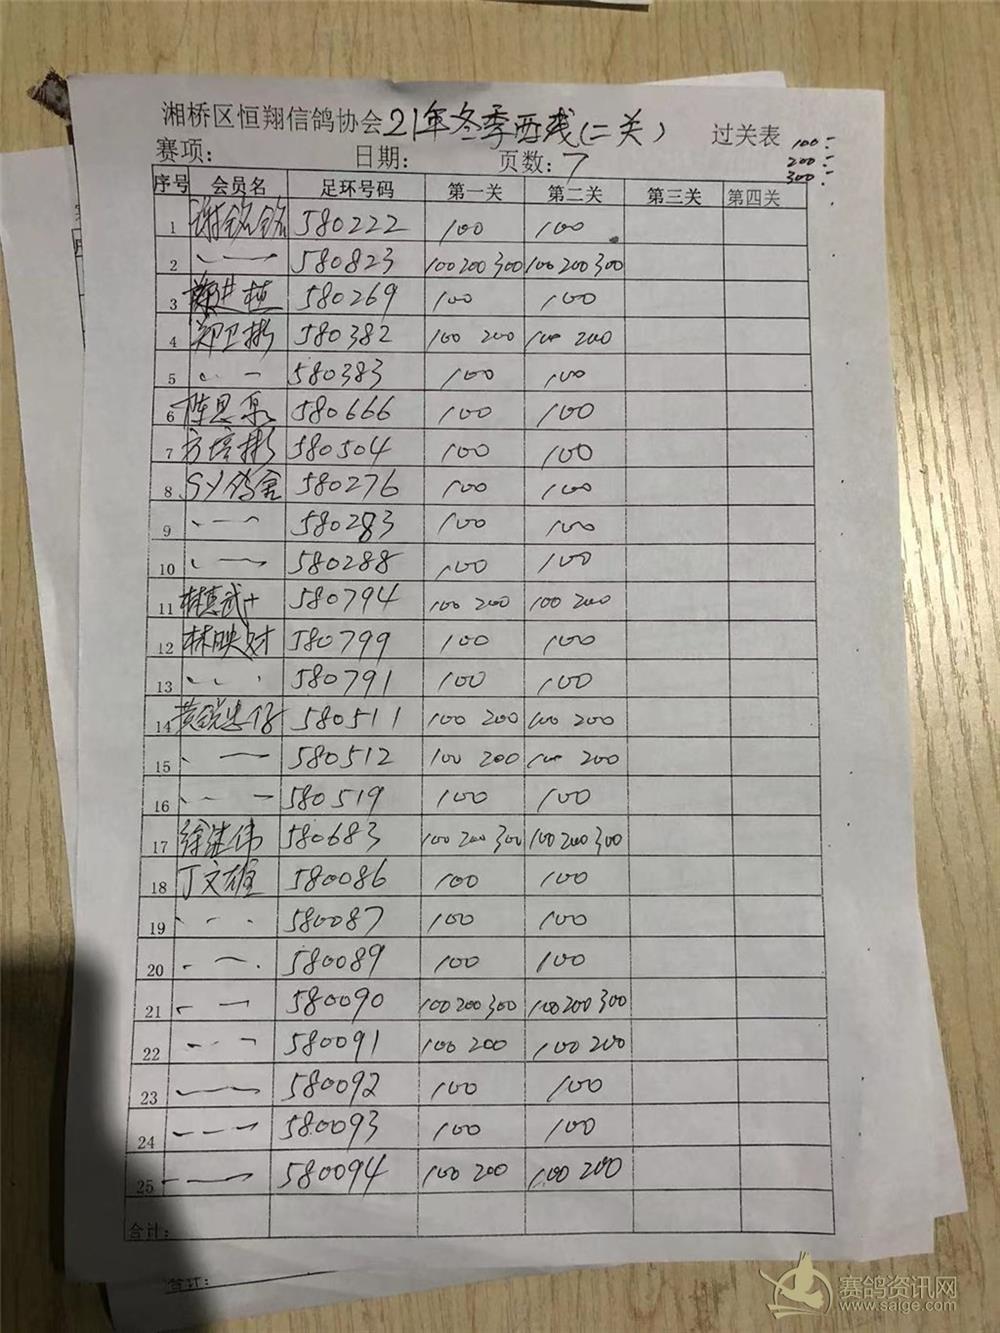 湘桥区恒翔信鸽协会21年冬季西线(二关) 过关表
赛项: 日期: 页数: 7
100:
200:
300:
序号 会员名 足环号码 第一关 第二关 第三关 第四关
1 谢铭铭 580222 100 100
2 〃 580823 100 200 300 100 200 300
3 580269 100 100
4 郑卫彬 580382 100 200 100 200
5 〃 580383 100 100
6 陈思 580666 100 100
7 方培彬 580504 100 100
8 SY鸽舍 580276 100 100
9 〃 580283 100 100
10 〃 580288 100 100
11 580794 100 200 100 200
12 林映对 580799 100 100
13 〃 580791 100 100
14 黄锐忠 580511 100 200 100 200
15 〃 580512 100 200 100 200
16 〃 580519 100 100
17 徐继伟 580683 100 200 300 100 200 300
18 丁文雄 580086 100 100
19 〃 580087 100 100
20 〃 580089 100 100
21 〃 580090 100 200 300 100 200 300
22 〃 580091 100 200 100 200
23 〃 580092 100 100
24 〃 580093 100 100
25 〃 580094 100 200 100 200
合计:
合计:
赛鸽资讯网
www.saige.com